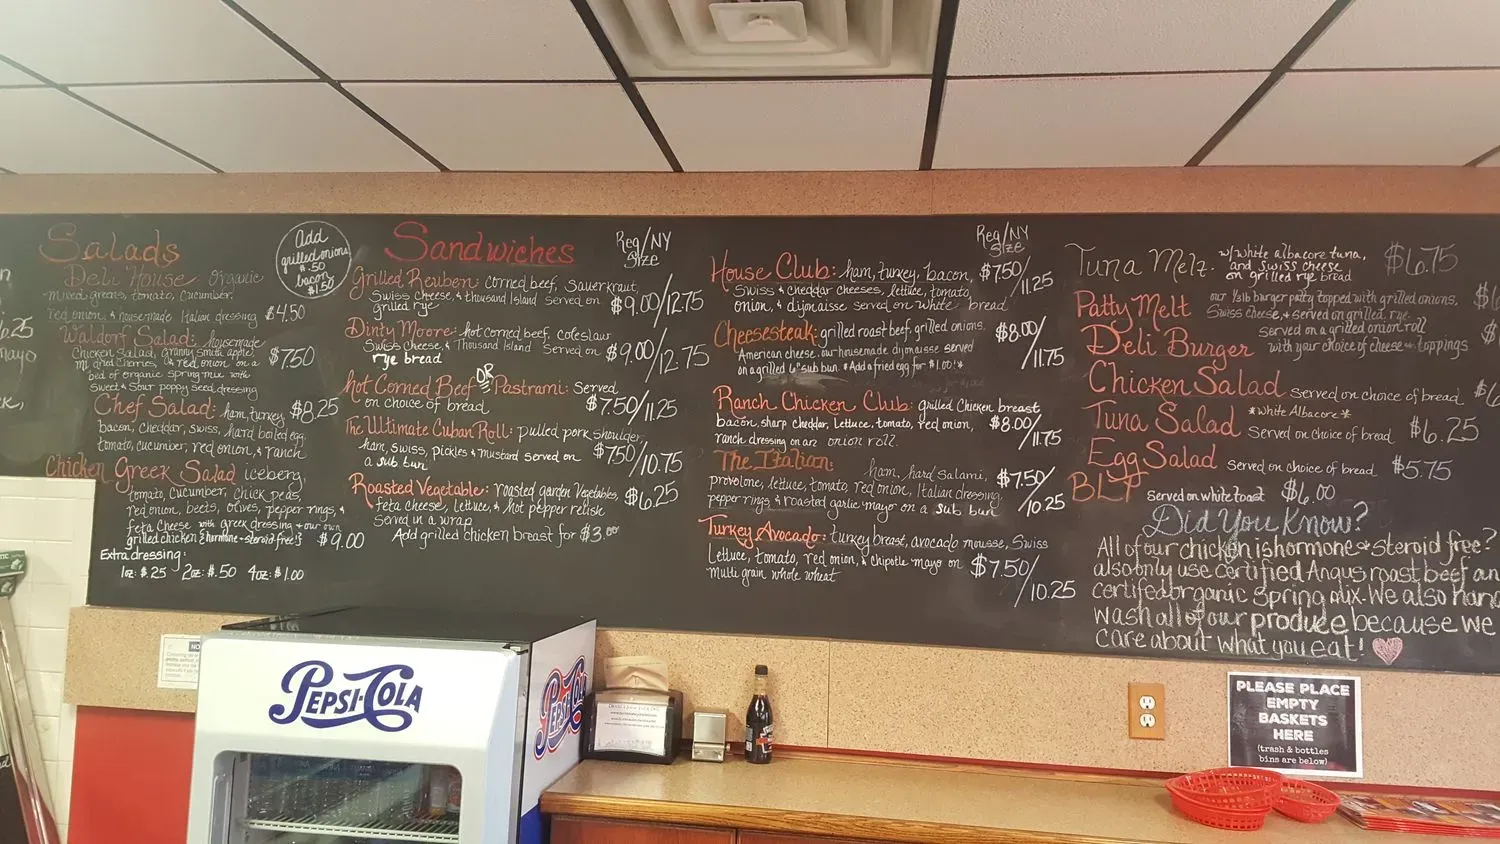 6.25
mayo
Salads
Add
grilled onions
$.50
bacon
$1.50
Deli House organic
mixed greens, tomato, cucumber,
red onion, & housemade Italian dressing $4.50
Waldorf Salad: housemade
Chicken Salad, granny smith apple, $7.50
& red onion on a
bed of organic spring mix with
sweet & sour poppy seed dressing
Chef Salad: ham, turkey, $8.25
bacon, cheddar, swiss, hard boiled egg,
tomato, cucumber, red onion, & ranch
Chicken Greek Salad iceberg,
tomato, cucumber, chick peas,
red onion, beets, olives, pepper rings, &
feta cheese with greek dressing & our own
grilled chicken {hormone & steroid free!} $9.00
Extra dressing:
1oz: $.25 2oz: $.50 4oz: $1.00
Sandwiches
Reg/NY
size
Grilled Reuben: corned beef, Sauerkraut,
Swiss cheese, & thousand Island served on
grilled rye
$9.00/12.75
Dinty Moore: hot corned beef, coleslaw
Swiss cheese, & Thousand Island Served on
rye bread
$9.00/12.75
hot Corned Beef OR Pastrami: Served
on choice of bread
$7.50/11.25
The Ultimate Cuban Roll: pulled pork shoulder,
ham, swiss, pickles & mustard served on
a sub bun
$7.50/10.75
Roasted Vegetable: roasted garden vegetables,
feta cheese, lettuce, & hot pepper relish
Served in a wrap
$6.25
Add grilled chicken breast for $3.00
Reg/NY
size
House Club: ham, turkey, bacon,
Swiss & cheddar cheeses, lettuce, tomato,
onion, & dijonaise served on white bread
$7.50/11.25
Cheesesteak: grilled roast beef, grilled onions,
American cheese, our housemade dijonaisse served
on a grilled 6" sub bun *Add a fried egg for $1.00!*
$8.00/11.75
Ranch Chicken Club: grilled Chicken breast
bacon, sharp cheddar, lettuce, tomato, red onion,
ranch dressing on an onion roll.
$8.00/11.75
The Italian:
ham, hard salami,
provolone, lettuce, tomato, red onion, Italian dressing,
pepper rings & roasted garlic mayo on a sub bun
$7.50/10.25
Turkey Avocado: turkey breast, avocado mousse, Swiss
lettuce, tomato, red onion, & chipotle mayo on
multi grain whole wheat
$7.50/10.25
Tuna Melt. w/ white albacore tuna,
and swiss cheese
on grilled rye bread
$6.75
Patty Melt our 1/2lb burger patty topped with grilled onions,
Swiss cheese, & served on grilled rye.
Deli Burger served on a grilled onion roll
with your choice of cheese & toppings
Chicken Salad served on choice of bread
Tuna Salad *White Albacore*
Served on choice of bread $6.25
Egg Salad served on choice of bread $5.75
BLT served on white toast $6.00
Did You Know?
All of our chicken is hormone & steroid free?
also only use certified Angus roast beef an
certified organic spring mix. We also hand
wash all of our produce because we
care about what you eat!
PEPSI-COLA
PEPSI-COLA
PLEASE PLACE
EMPTY
BASKETS
HERE
(trash & bottles
bins are below)